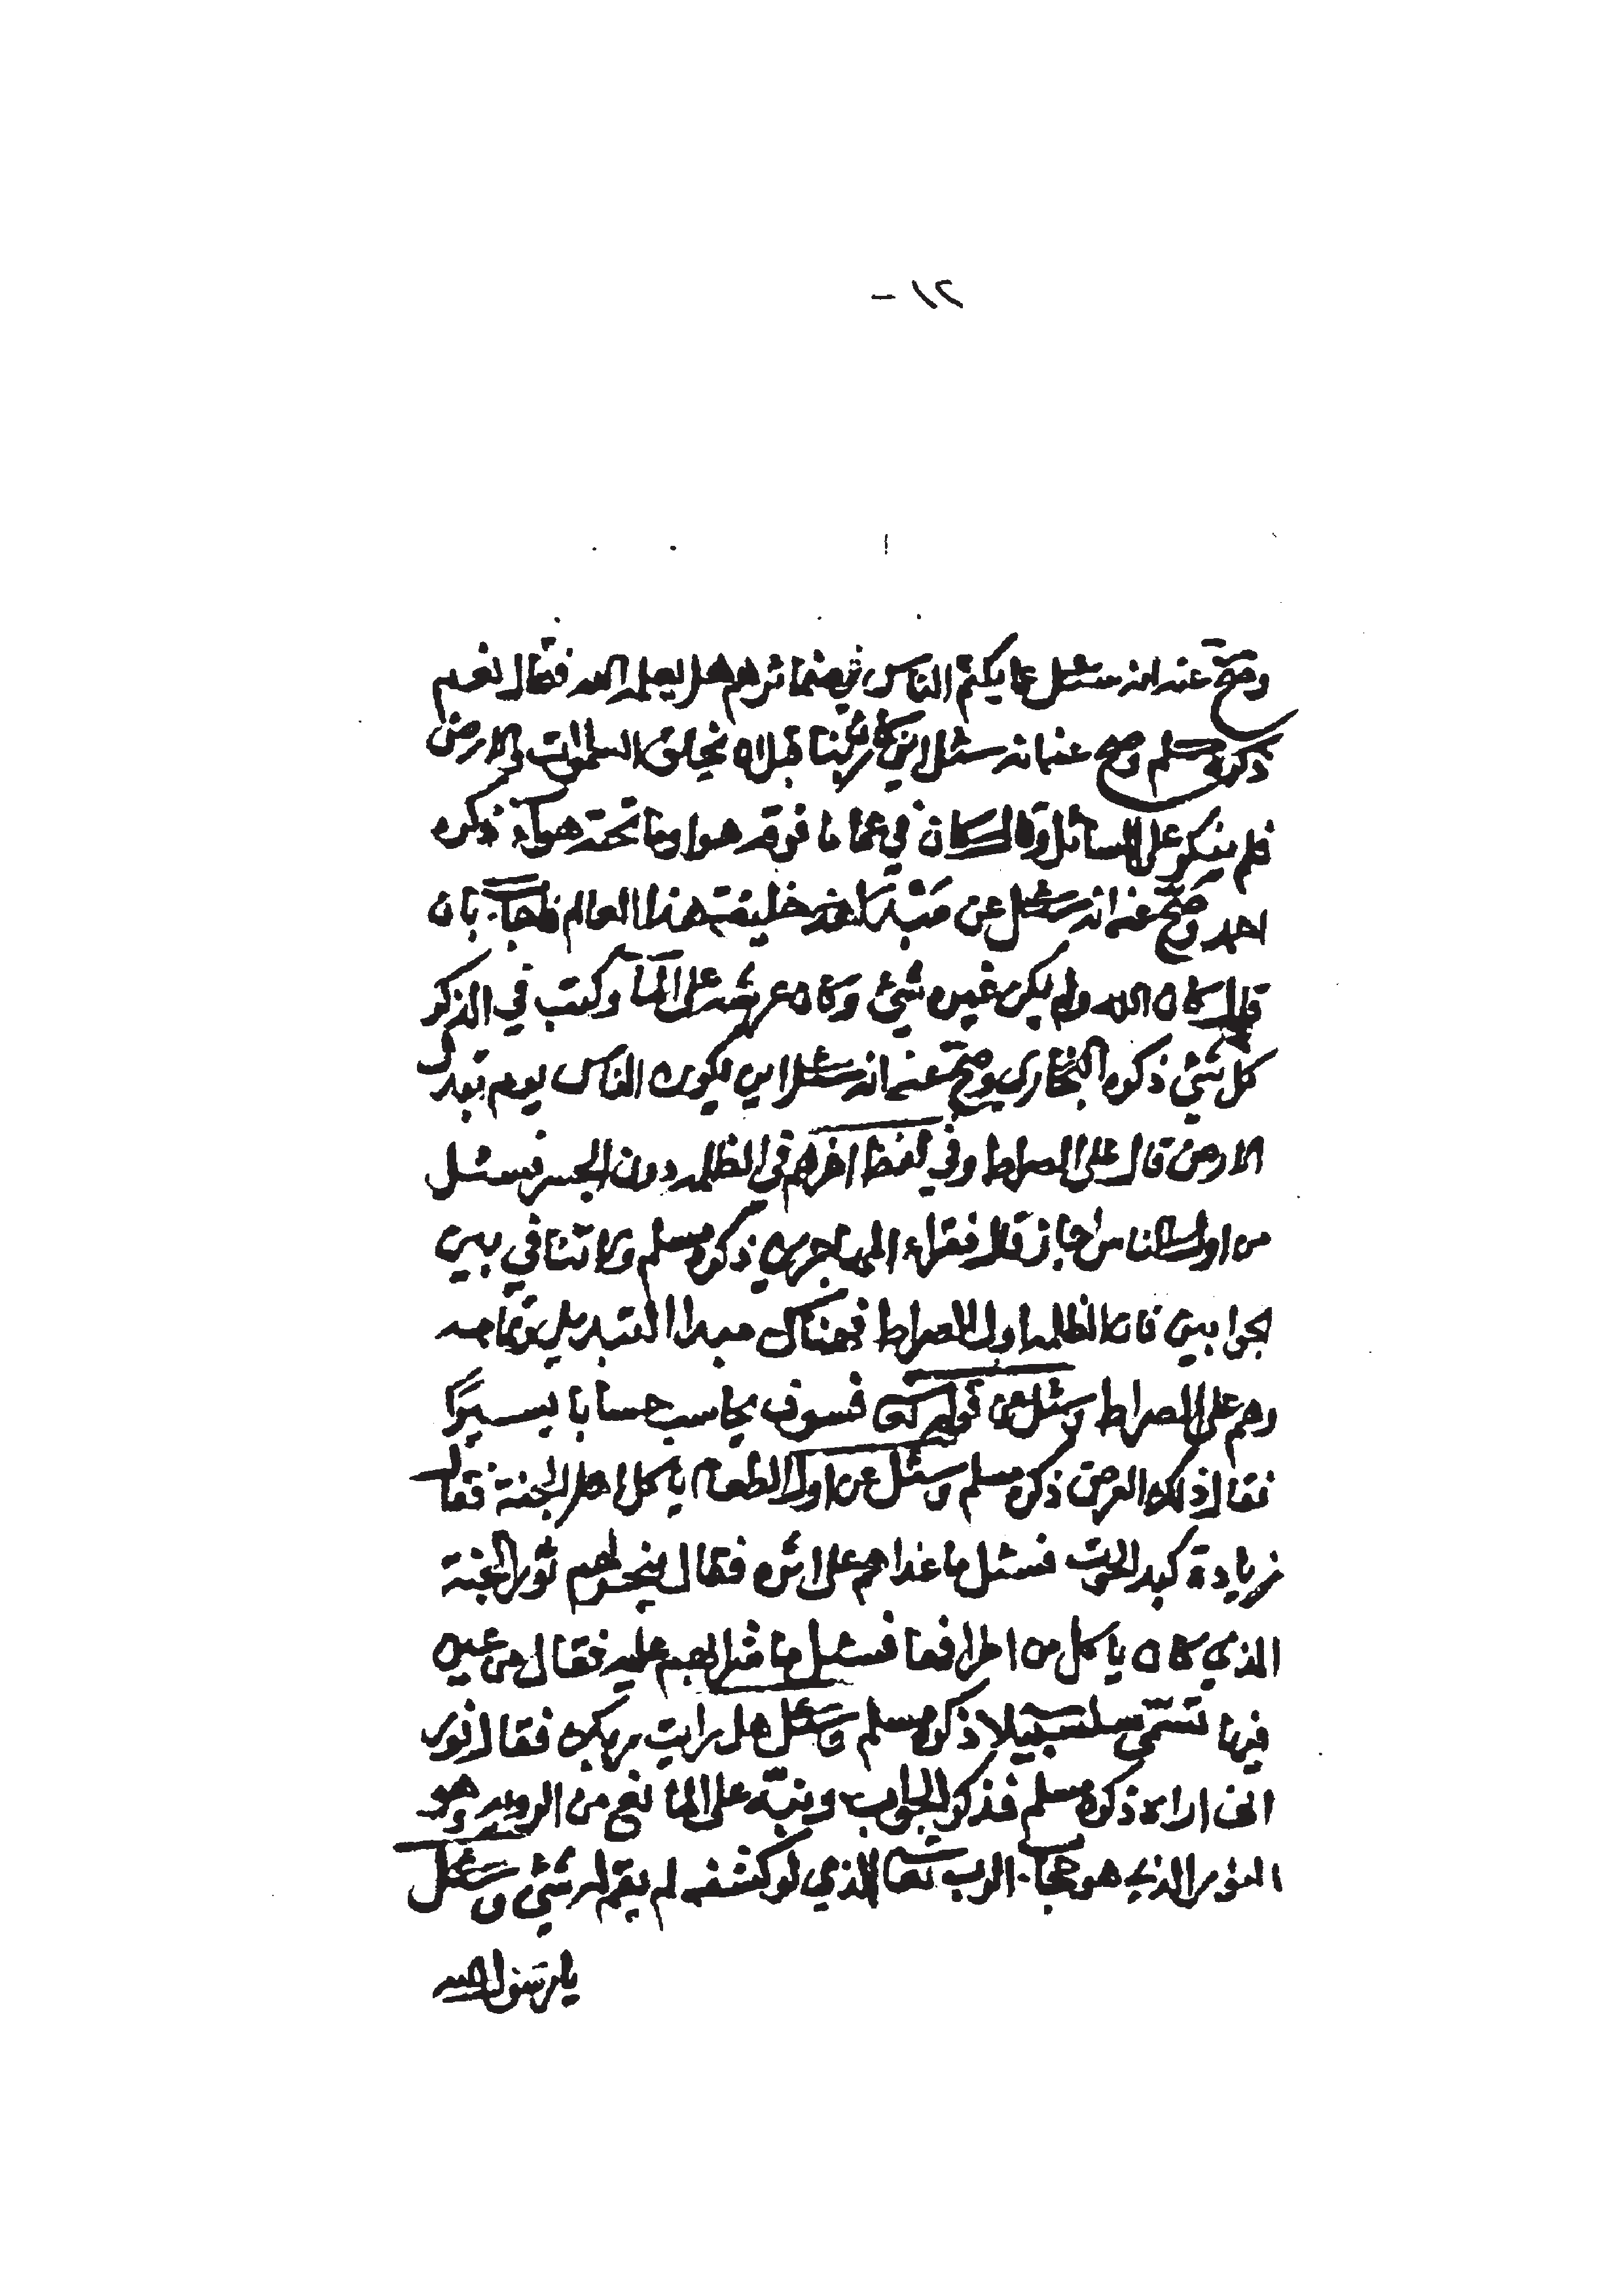 ١٢ -
وصح عنه انه سئل عما يكتم الناس في ضمائرهم هل يعلمه الله فقال نعم
ذكره مسلم وصح عنه انه سئل اين كان ربنا قبل ان يخلق السموات والارض
فلم ينكر على السائل وقال كان في عما ما فوقه هوا وما تحته هواء ذكره
احمد وصح عنه انه سئل عن مبتدا خليقة هذا العالم فاجاب بان
قال كان الله ولم يكن غيره شئ وكان عرشه على المآ وكتب في الذكر
كل شئ ذكره البخارى وصح عنه انه سئل اين يكون الناس يوم تبدل
الارض قال على الصراط وفي لفظ اخر هم في الظلمه دون الجسر فسئل
من اول الناس اجازة قال فقراء المهاجرين ذكره مسلم ولا تنافي بين
الجوابين فان الظلمه اول الصراط فهناك مبدا التبديل وتمامه
وهم على الصراط وسئل عن قوله تعالى فسوف يحاسب حسابا يسيرًا
فقال ذلك العرض ذكره مسلم وسئل عن اول الطعام ياكل اهل الجنة فقال
زيادة كبد الحوت فسئل ما غداهم على اثره فقال ينحر لهم ثور الجنة
الذي كان ياكل من اطرافها فسئل ما شرابهم عليه فقال من عين
فيها تسمى سلسبيلا ذكره مسلم وسئل هل رايت ربك فقال نور
انى اراه ذكره مسلم فذكر الجواب ونبّه على المانع من الرويه وهو
النور الذي هو حجاب الرب تعالى الذي لو كشفه لم يقم له شئ وسئل
يا رسول الله